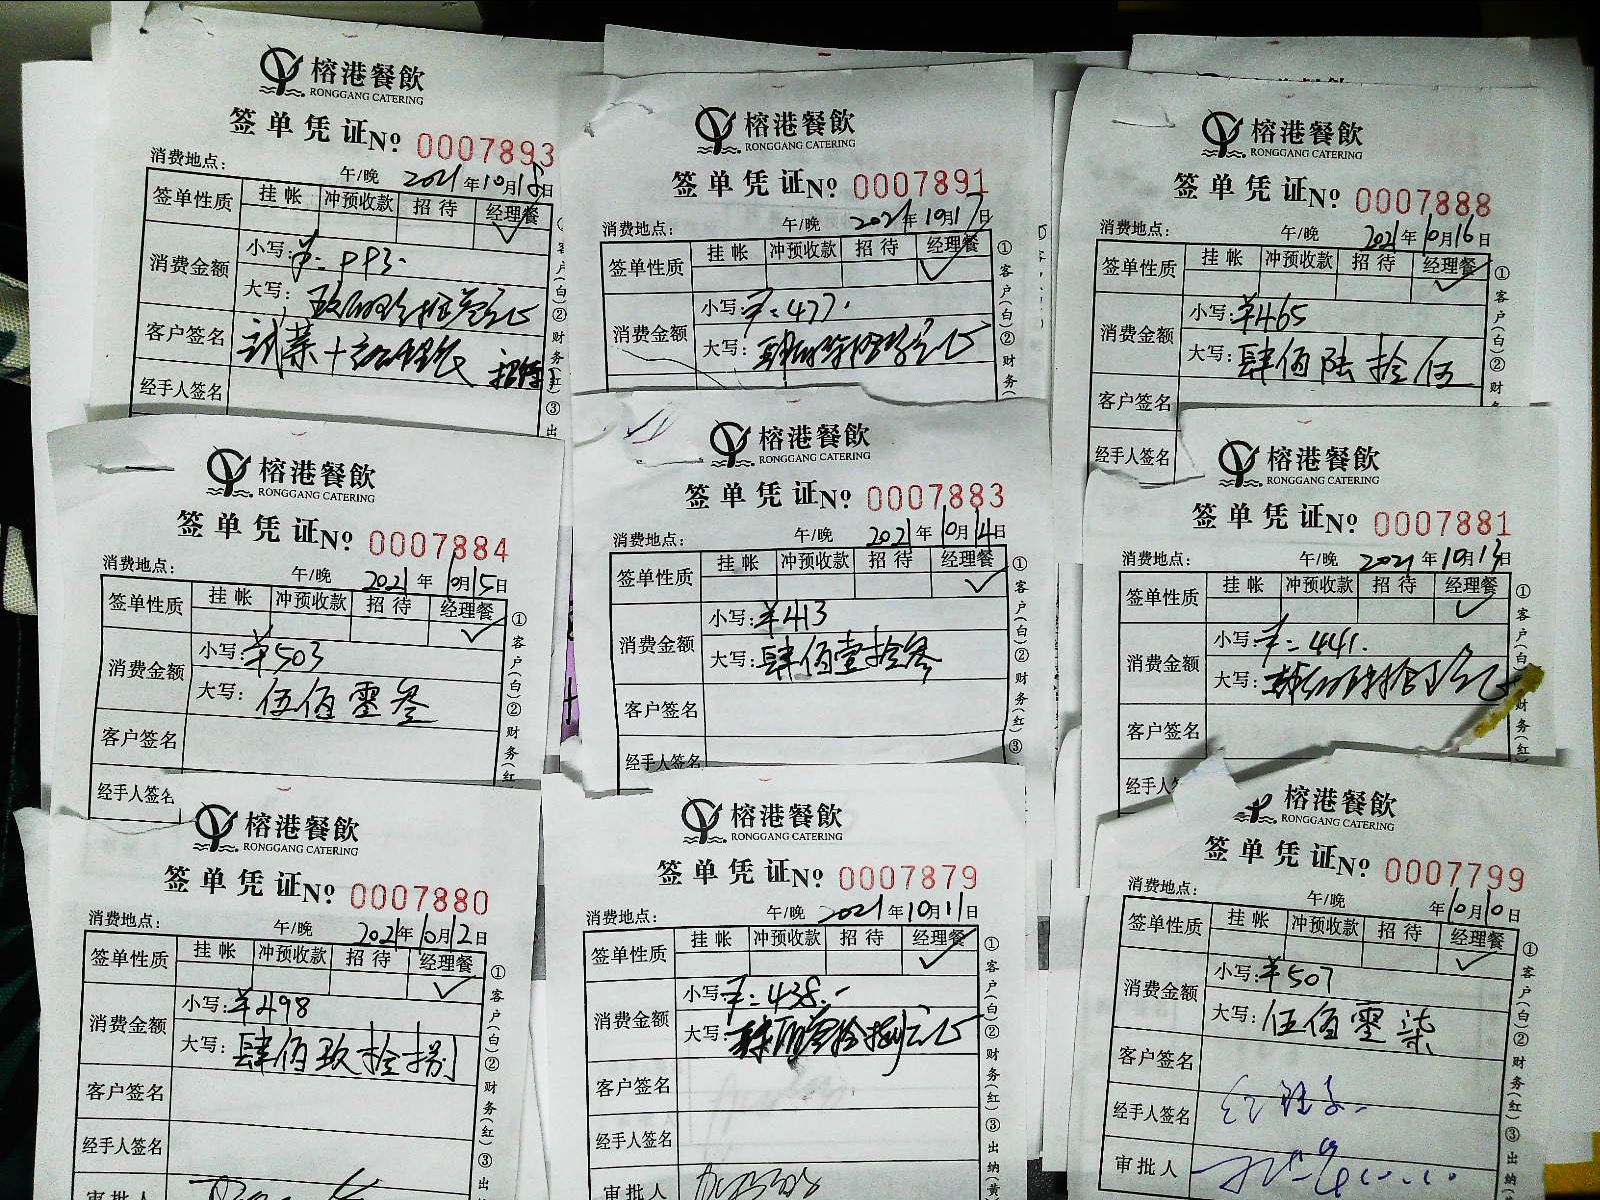 榕港餐飲
RONGGANG CATERING
签单凭证 № 0007893
消费地点: 午/晚 2021年10月18日
签单性质 挂帐 冲预收款 招待 经理餐
消费金额 小写: ¥: 993.
大写: 玖佰玖拾叁元正
客户签名 试菜+ 招待
经手人签名
榕港餐飲
RONGGANG CATERING
签单凭证 № 0007891
消费地点: 午/晚 2021年10月17日
签单性质 挂帐 冲预收款 招待 经理餐
消费金额 小写: ¥: 477.
大写: 肆佰柒拾柒元正
榕港餐飲
RONGGANG CATERING
签单凭证 № 0007888
消费地点: 午/晚 2021年10月16日
签单性质 挂帐 冲预收款 招待 经理餐
消费金额 小写: ¥465
大写: 肆佰陆拾伍
客户签名
经手人签名
①客户(白)②财务
榕港餐飲
RONGGANG CATERING
签单凭证 № 0007884
消费地点: 午/晚 2021年10月15日
签单性质 挂帐 冲预收款 招待 经理餐
消费金额 小写: ¥503
大写: 伍佰零叁
客户签名
经手人签名
①客户(白)②财务(红
榕港餐飲
RONGGANG CATERING
签单凭证 № 0007883
消费地点: 午/晚 2021年10月14日
签单性质 挂帐 冲预收款 招待 经理餐
消费金额 小写: ¥413
大写: 肆佰壹拾叁
客户签名
经手人签名
①客户(白)②财务(红)③
榕港餐飲
RONGGANG CATERING
签单凭证 № 0007881
消费地点: 午/晚 2021年10月13日
签单性质 挂帐 冲预收款 招待 经理餐
消费金额 小写: ¥: 441.
大写: 肆佰肆拾壹元正
客户签名
经手人
榕港餐飲
RONGGANG CATERING
签单凭证 № 0007880
消费地点: 午/晚 2021年10月12日
签单性质 挂帐 冲预收款 招待 经理餐
消费金额 小写: ¥498
大写: 肆佰玖拾捌
客户签名
经手人签名
审批人
①客户(白)②财务(红)③出纳
榕港餐飲
RONGGANG CATERING
签单凭证 № 0007879
消费地点: 午/晚 2021年10月11日
签单性质 挂帐 冲预收款 招待 经理餐
消费金额 小写: ¥: 438.-
大写: 肆佰叁拾捌元正
客户签名
经手人签名
审批人
①客户(白)②财务(红)③出纳(黄
榕港餐飲
RONGGANG CATERING
签单凭证 № 0007799
消费地点: 午/晚 年10月10日
签单性质 挂帐 冲预收款 招待 经理餐
消费金额 小写: ¥507
大写: 伍佰零柒
客户签名
经手人签名
审批人
①客户(白)②财务(红)③出纳(黄